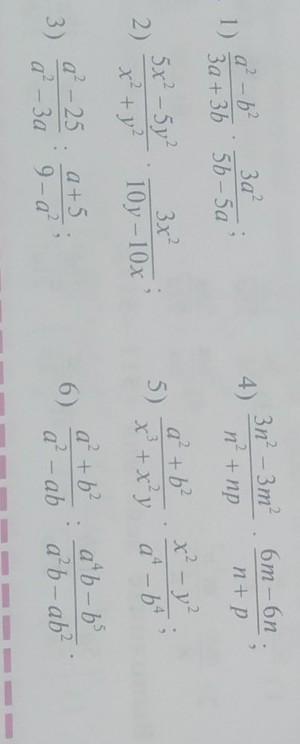 1) \frac{a^2-b^2}{3a+3b} \cdot \frac{3a^2}{5b-5a};
2) \frac{5x^2-5y^2}{x^2+y^2} \cdot \frac{3x^2}{10y-10x};
3) \frac{a^2-25}{a^2-3a} : \frac{a+5}{9-a^2};
4) \frac{3n^2-3m^2}{n^2+np} \cdot \frac{6m-6n}{n+p};
5) \frac{a^2+b^2}{x^3+x^2y} \cdot \frac{x^2-y^2}{a^4-b^4};
6) \frac{a^2+b^2}{a^2-ab} : \frac{a^4b-b^5}{a^2b-ab^2}.